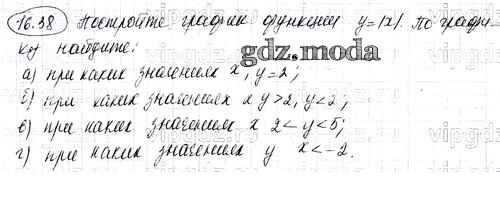 16.38 Постройте график функции y=|x|. По графи-
ку найдите:
gdz.moda
а) при каких значениях x, y=2;
б) при каких значениях x y>2, y<2;
в) при каких значениях x 2<y<5;
г) при каких значениях y x<-2.